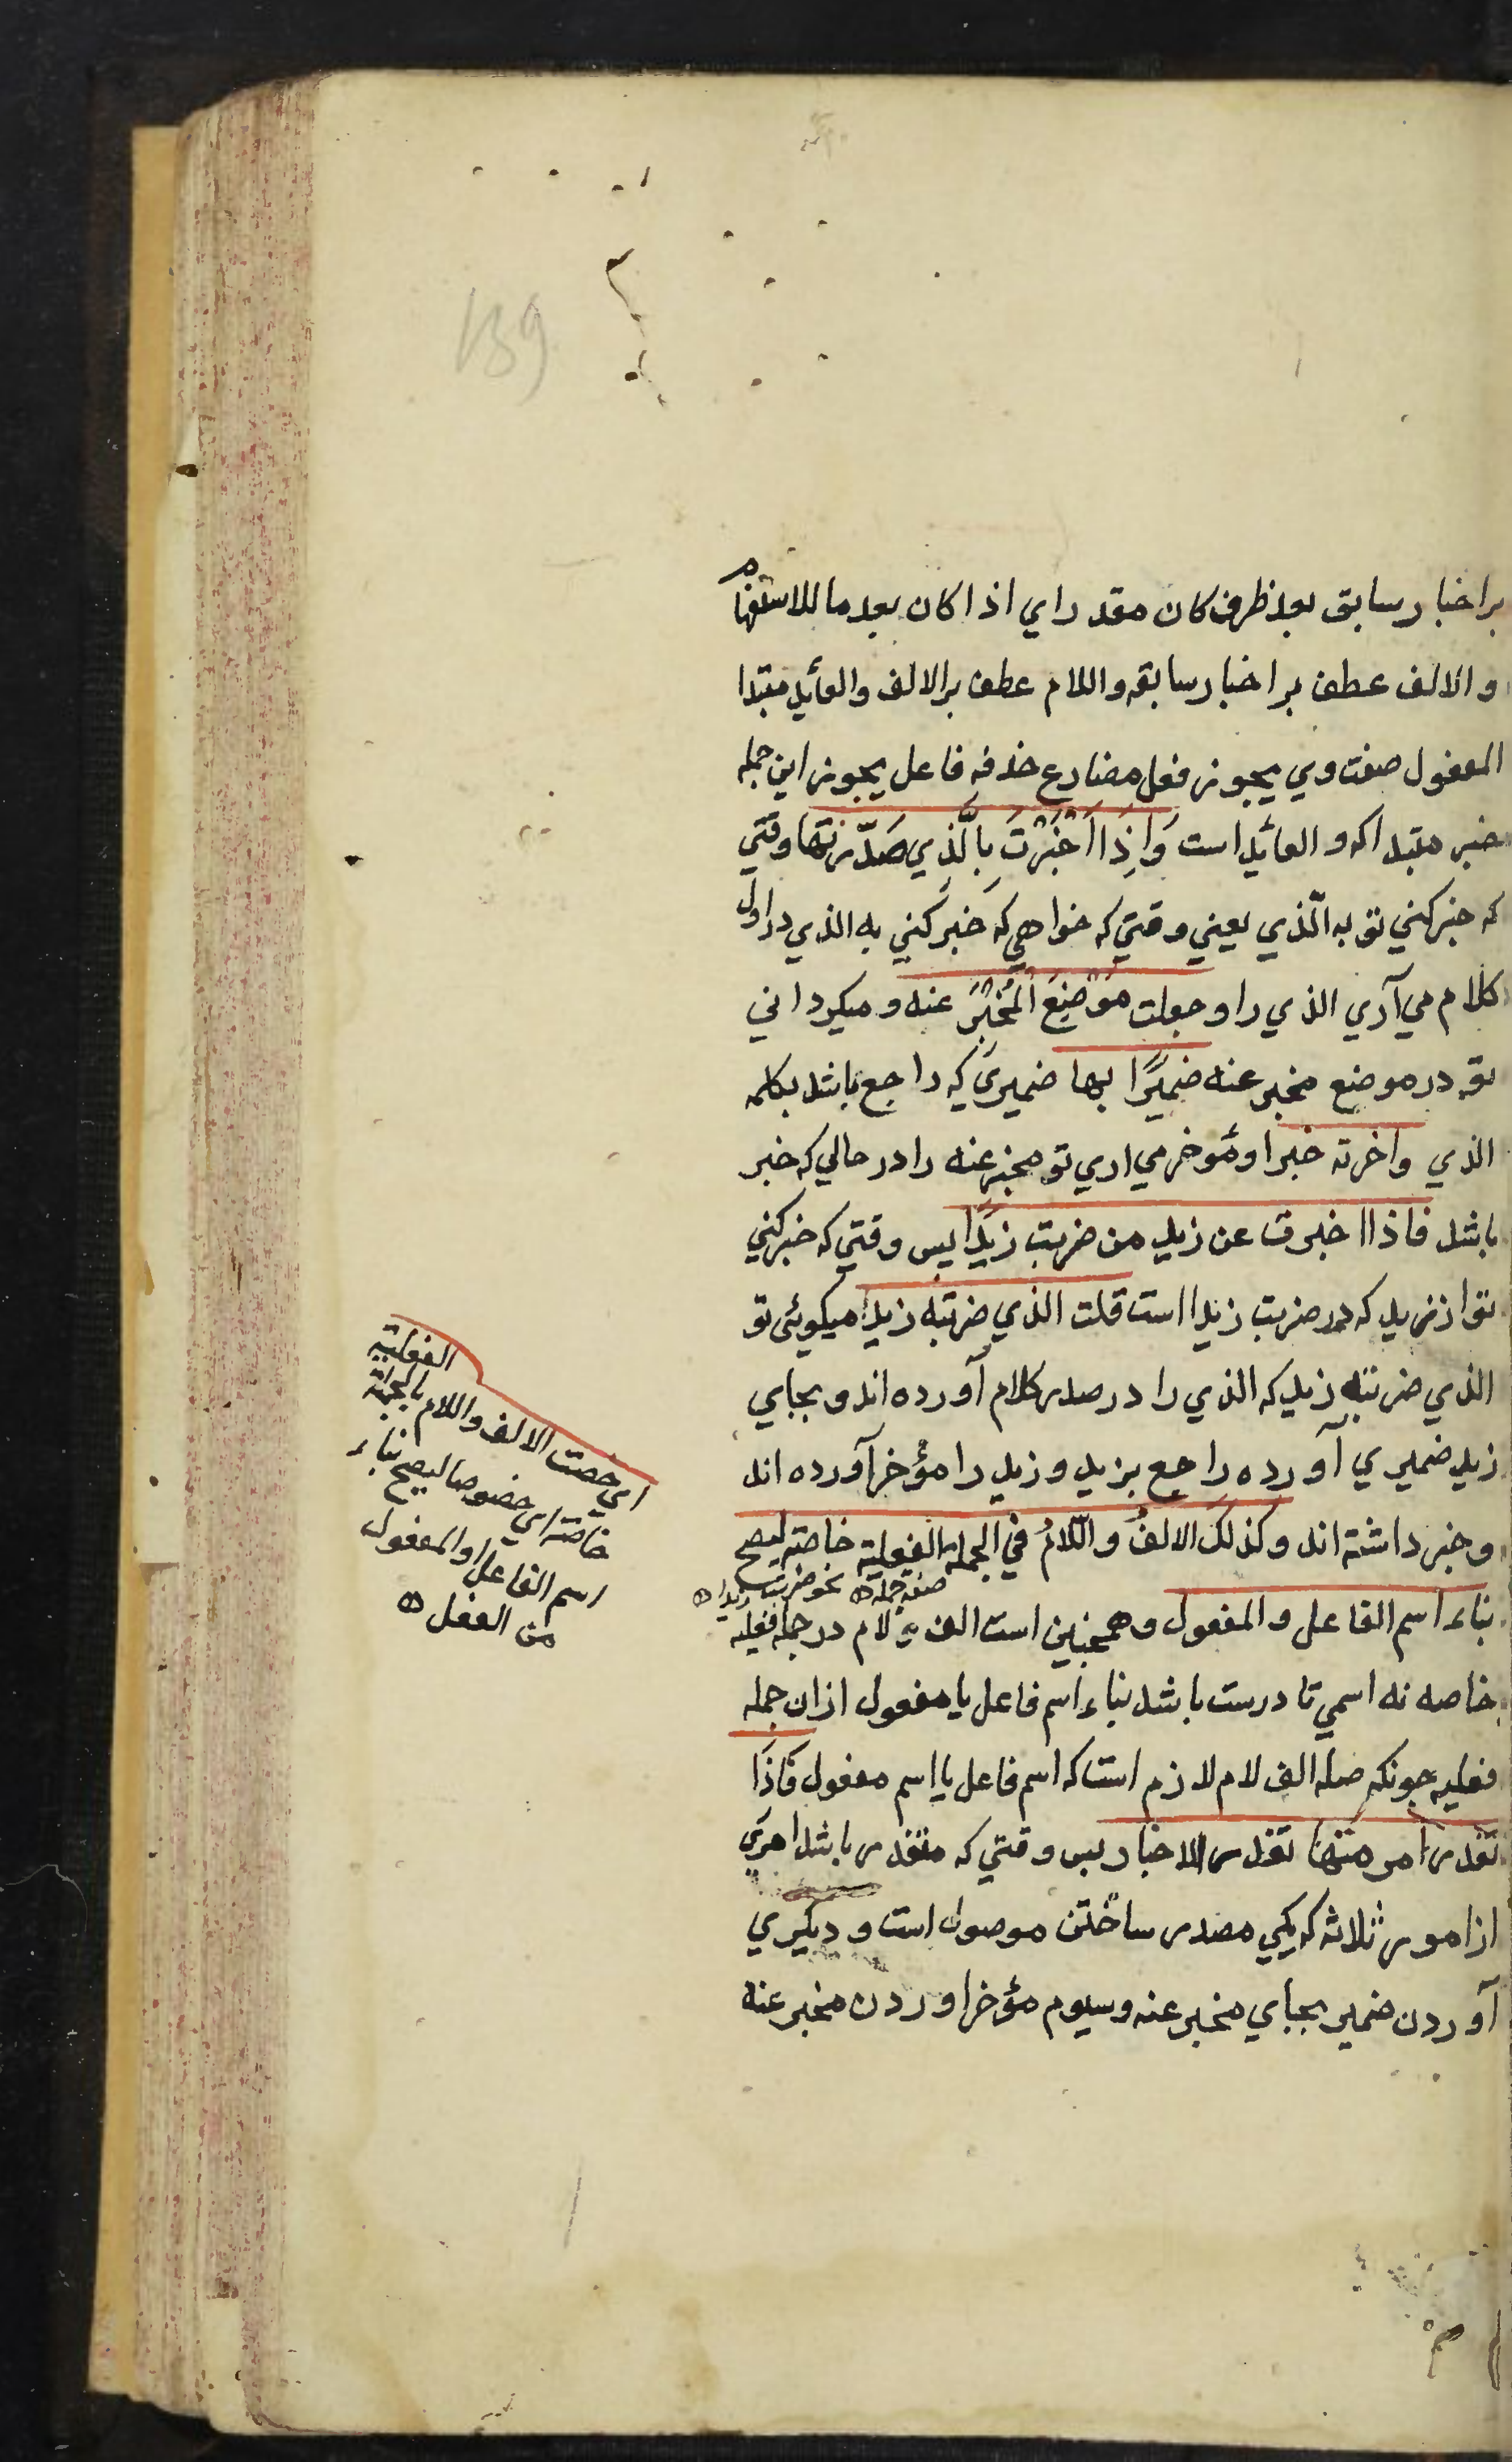 بر اخبار سابق بعد ظرف کان مقدر اي اذا کان بعد ما للاستفهام
و الالف عطف بر اخبار سابقه واللام عطف بر الالف والعائد مبتدا
المفعول صفت وي يجوز فعل مضارع حذفه فاعل يجوز اين جمله
خبر مبتدا که و العائد است وَاِذَا اَخْبَرْتَ بِالَّذي صَدَّرتَها وقتي
که خبر کني تو به الّذي يعني وقتي که خواهي که خبر کني به الذي در اول
کلام مي آري الذي را و جعلت مَوْضِعَ الْمُخْبَرِ عنه و ميکرداني
تو در موضع مخبر عنه ضميرًا لها ضميري که راجع باشد بکلمه
الذي واخرته خبرا و مؤخر مي اري تو مخبر عنه را در حالي که خبر
باشد فاذا اخبرت عن زيد من ضربت زيدًا پس وقتي که خبر کني
تو از زيد که در ضربت زيدا است قلت الذي ضربته زيد ميکوئي تو
الذي ضربته زيد که الذي را در صدر کلام آورده اند و بجاي
زيد ضميري آورده راجع بزيد و زيد را مؤخر آورده اند
و خبر داشته اند و کذلک الالفُ واللّامُ في الجملة الفعلية خاصة ليصح
صفة جمله نحو ضربت زيدا
بناء اسم الفاعل و المفعول و همچنين است الف و لام در جمله فعليه
خاصه نه اسمي تا درست باشد بناء اسم فاعل يا مفعول ازان جمله
فعليه جونکه صله الف لام لازم است که اسم فاعل يا اسم مفعول فَاذَا
تعذر امر منها تعذر الاخبار پس وقتي که متعذر باشد امري
از امور ثلاثه که يکي مصدر ساختن موصول است و ديکري
آوردن ضمير بجاي مخبر عنه و سيوم مؤخر اوردن مخبر عنه
الفعلية
اي خصت الالف واللام بالجملة
خاصة اي خصوصا ليصح بناء
اسم الفاعل او المفعول
من الفعل